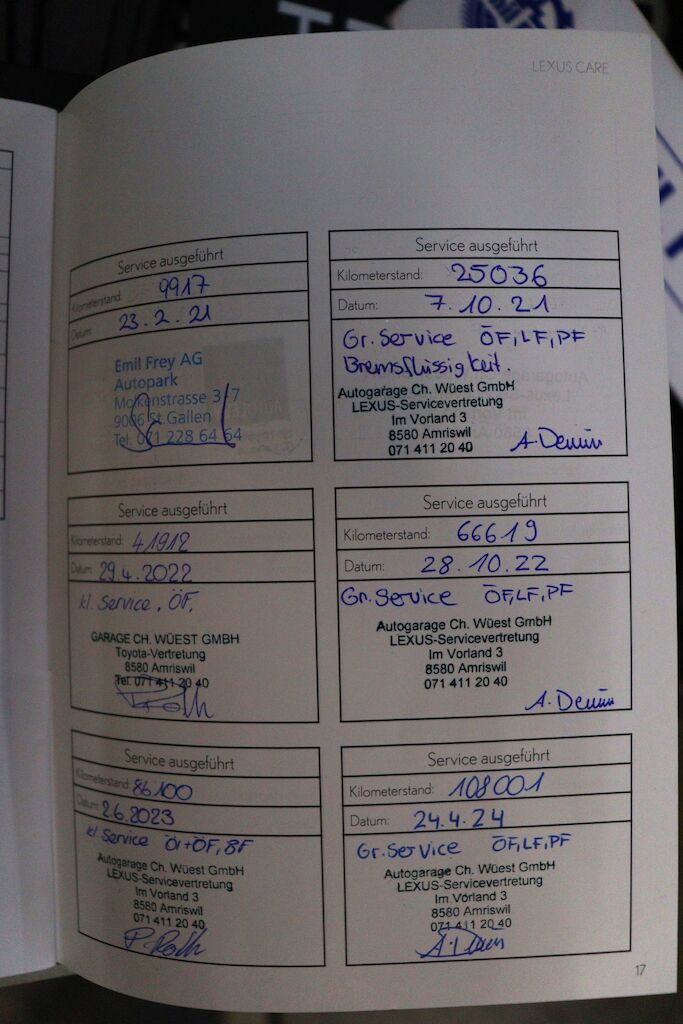 LEXUS CARE
Service ausgeführt
Kilometerstand: 9917
Datum: 23.2.21
Emil Frey AG
Autopark
Molkenstrasse 3/7
9006 St.Gallen
Tel. 071 228 64 64
Service ausgeführt
Kilometerstand: 25036
Datum: 7.10.21
Gr. Service ÖF, LF, PF
Bremsflüssigkeit.
Autogarage Ch. Wüest GmbH
LEXUS-Servicevertretung
Im Vorland 3
8580 Amriswil
071 411 20 40
Service ausgeführt
Kilometerstand: 41912
Datum: 29.4.2022
kl. Service, ÖF,
GARAGE CH. WÜEST GMBH
Toyota-Vertretung
8580 Amriswil
Tel. 071 411 20 40
P. Roth
Service ausgeführt
Kilometerstand: 66619
Datum: 28.10.22
Gr. Service ÖF, LF, PF
Autogarage Ch. Wüest GmbH
LEXUS-Servicevertretung
Im Vorland 3
8580 Amriswil
071 411 20 40
Service ausgeführt
Kilometerstand: 86100
Datum: 2.6.2023
kl Service Öl+ÖF, BF
Autogarage Ch. Wüest GmbH
LEXUS-Servicevertretung
Im Vorland 3
8580 Amriswil
071 411 20 40
P. Roth
Service ausgeführt
Kilometerstand: 108001
Datum: 24.4.24
Gr. Service ÖF, LF, PF
Autogarage Ch. Wüest GmbH
LEXUS-Servicevertretung
Im Vorland 3
8580 Amriswil
071 411 20 40
17